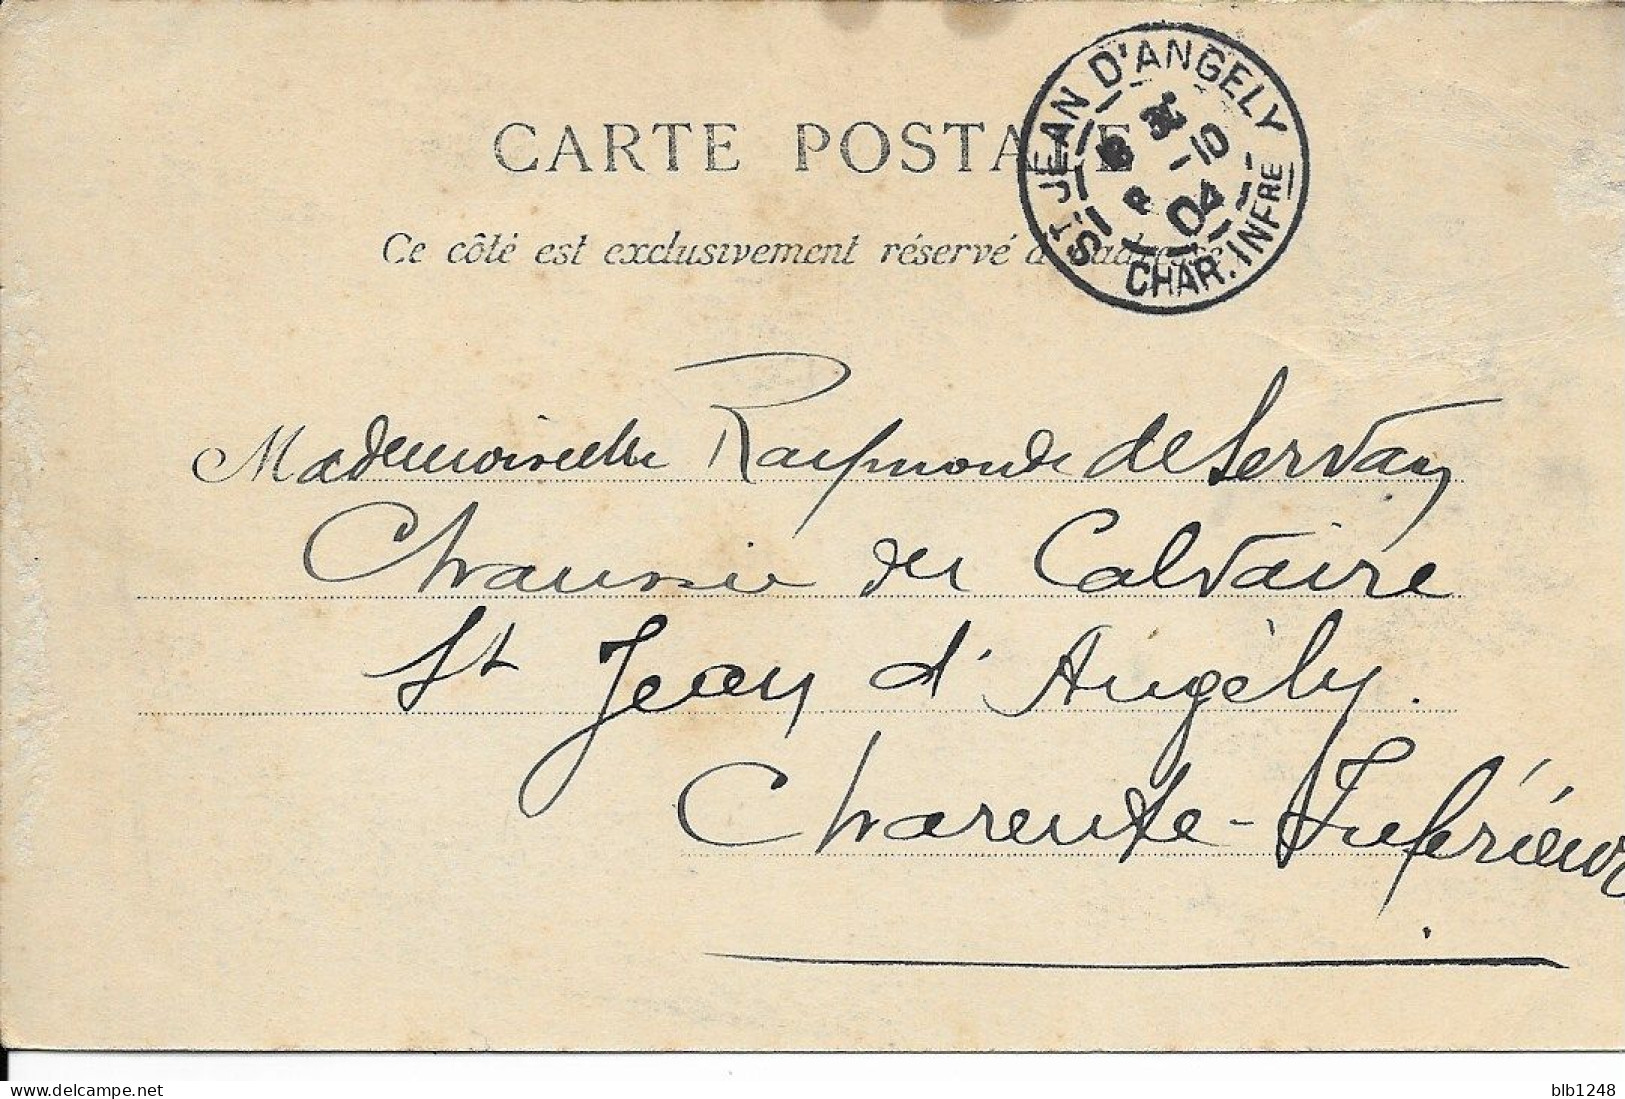 CARTE POSTALE
Ce côté est exclusivement réservé à l'adresse
ST JEAN D'ANGELY
10
04
CHAR. INFRE
Mademoiselle Raymonde de Servan
Chaussée du Calvaire
St Jean d'Angèly.
Charente-Inférieure
blb1248